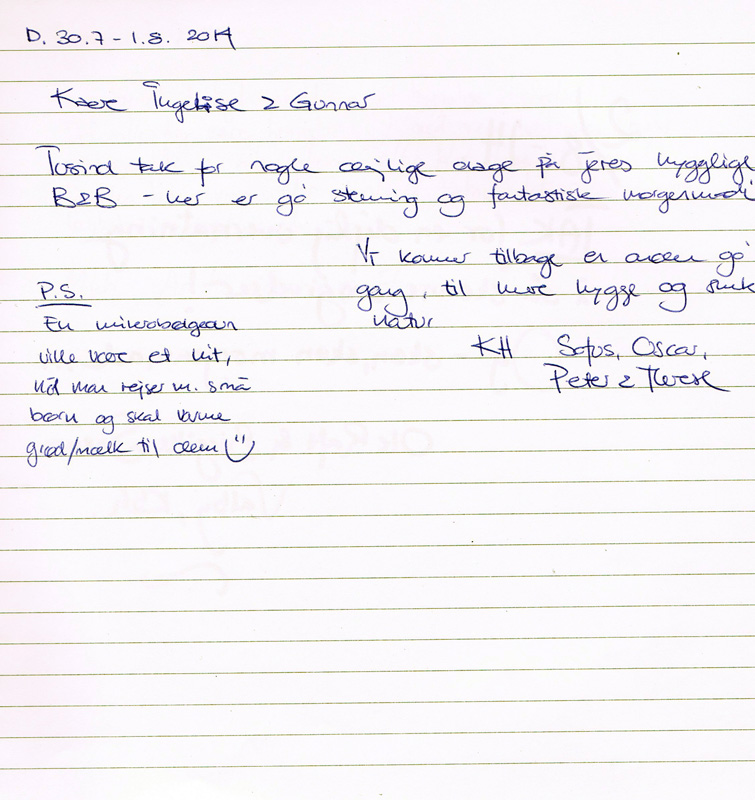 D. 30.7 - 1.8. 2014
Kære Ingelise & Gunnar
Tusind tak for nogle dejlige dage på jeres hyggelige
B&B - her er go' stemning og fantastisk morgenmad
Vi kommer tilbage en anden go'
gang, til mere hygge og smuk
natur
KH Sofus, Oscar,
Peter & Therese
P.S.
En mikrobølgeovn
ville være et hit,
når man rejser m. små
børn og skal varme
grød/mælk til dem